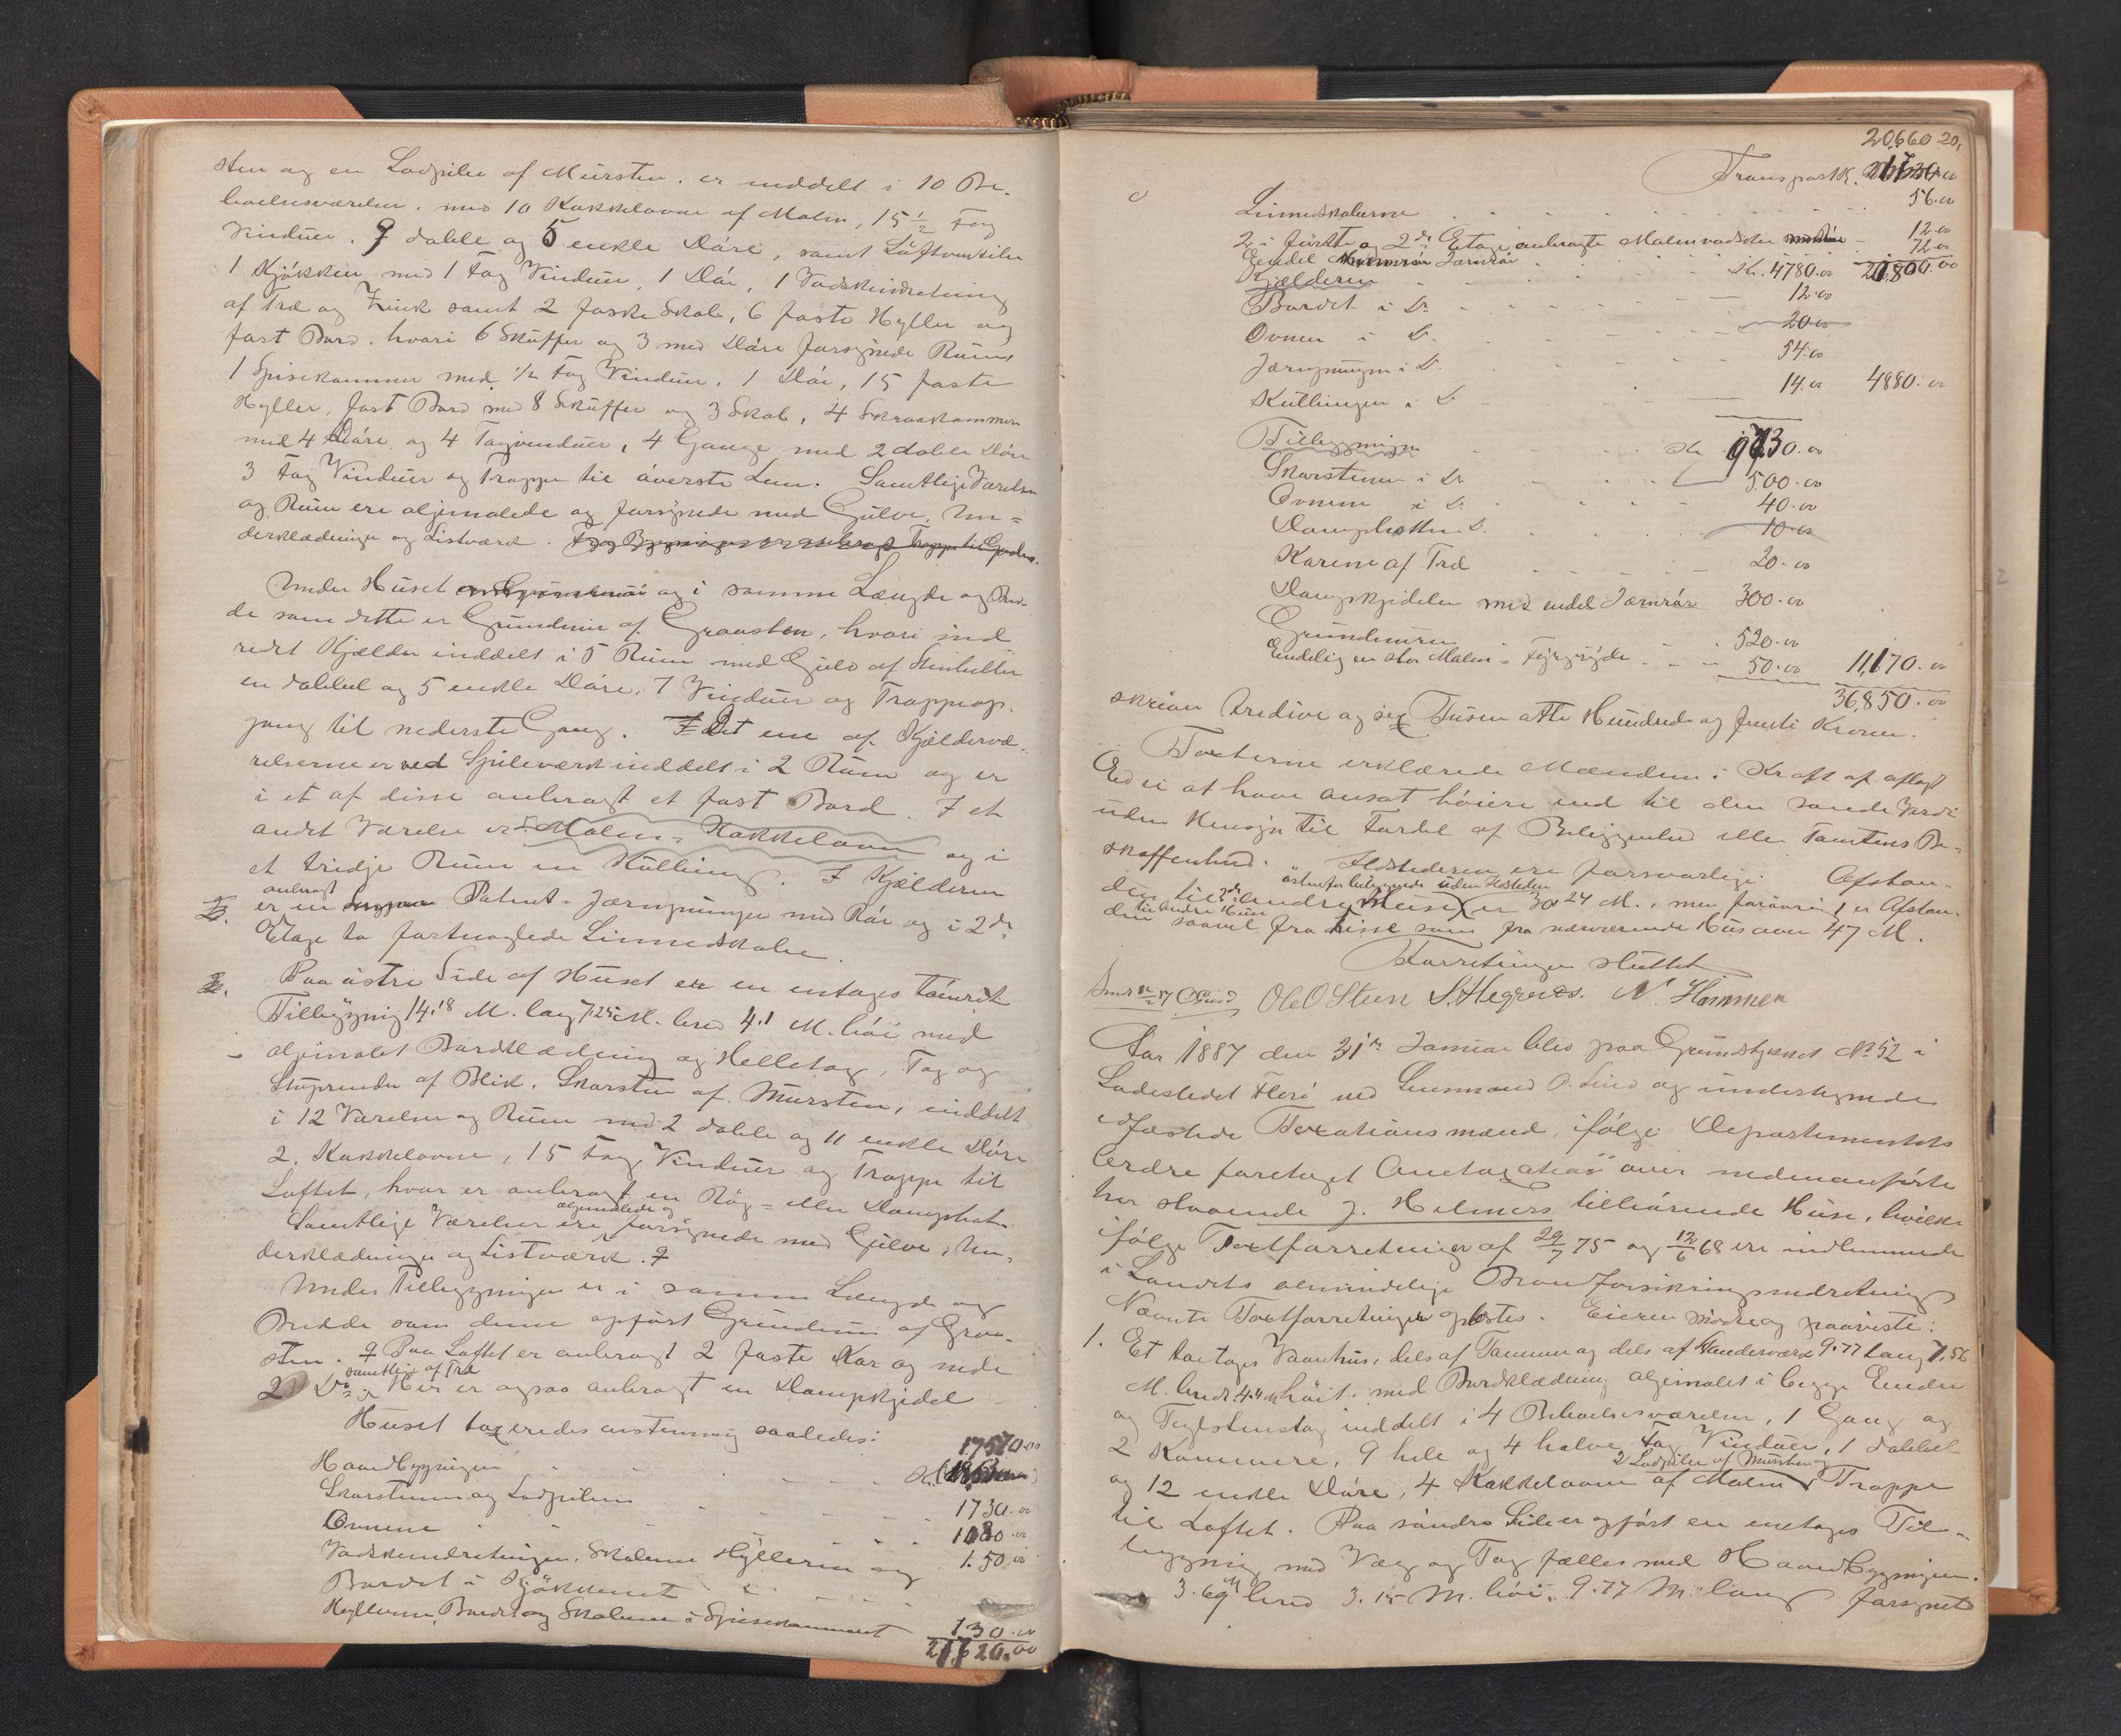 sten og en Lodpibe af Mursten. er inddelt i 10 Be-
boelsesværelser. med 10 Kakkelovne af Malm, 15 1/2 Fag
Vinduer. 9 doble og 5 enkle Døre, samt Luftventiler
1 Kjøkken med 1 Fag Vinduer, 1 Dør, 1 Vadskeindretning
af Træ og Zink samt 2 faste Skab, 6 faste Hyller og
fast Bord. hvori 6 Skuffer og 3 med Døre forsynede Rum,
1 Spisekammer med 1/2 Fag Vinduer, 1 Dør, 15 faste
Hyller, fast Bord med 8 Skuffer og 3 Skab, 4 Skraakammer
med 4 Døre og 4 Tagvinduer, 4 Gange med 2 doble Døre
3 Fag Vinduer og Trappe til øverste Lem. Samtlige Værelser
og Rum ere oljemalede og forsynede med Gulve, Un-
derklædninger og Listværk.
Under Huset og i samme Længde og Bred
de som dette er Grundmur af Graasten, hvori ind
redet Kjælder inddelt i 5 Rum med Gulv af Stenheller
en dobbel og 5 enkle Døre, 7 Vinduer og Trappeop-
gang til nederste Gang. I det ene af Kjældervæ-
relserne er ved Spileværk inddelt i 2 Rum og er
i et af disse anbragt et fast Bord. I et
andet Værelse er Malm-Kakkelovn og i
et tredje Rum en Kulbing. I Kjælderen
anbragt
er en Patent-Jernpumpe med Rør og i 2den
Etage to fastnaglede Linnedskabe.
Paa østre Side af Huset er en entages tømret
Tilbygning 14.18 M. lang 7.25 M. bred 4.1 M. høi med
oljemalet Bordklædning og Helletag, Tag og
Stuprender af Blik, Skorsten af Mursten, inddelt
i 12 Værelser og Rum med 2 doble og 11 enkle Døre
2. Kakkelovne, 15 Fag Vinduer og Trappe til
Loftet, hvor er anbragt en Røg- eller Damphat.
oljemalede og
Samtlige Værelser ere forsynede med Gulve, Un-
derklædninger og Listværk.
Under Tilbygningen er i samme Længde og
Bredde som denne opført Grundmur af Graa-
sten. Paa Loftet er anbragt 2 faste Kar og nede
samtlige af Træ
2 Do. Her er ogsaa anbragt en Dampkjedel
Huset taxeredes enstemmig saaledes:
Hovedbygningen 17570.00
Skorstenen og Lodpiben 1730.00
Ovnene 1080.00
Vadskeindretningen, Skabene Hyllerne og 150.00
Bordet i Kjøkkenet
Hyllerne, Bordet og Skabene i Spisekammeret 130.00
20660.20
Transport K.
Linnedskabene 56.00
2 i første og 2den Etage anbragte Malmvadske 12.00
Endel Jernrør 72.00
20,800.00
Kjælderen Kr. 4780.00
Bordet i Do. 12.00
Ovnen i Do. 20.00
Jernpumpen i Do. 54.00
Kulbingen i Do. 14.00 4880.00
Tilbygningen Kr. 9730.00
Skorstenen i Do. 500.00
Ovnene i Do. 40.00
Damphatten Do. 10.00
Karene af Træ 20.00
Dampkjedelen med endel Jernrør 300.00
Grundmuren 520.00
Endelig en stor Malm-Fyrgryde 50.00 11,170.00
36,850.00
skriver tredive og sex Tusen otte Hundrede og femti Kroner.
Taxterne erklærede Mændene i Kraft af aflagt
Ed ei at have ansat høiere end til den sande Værdi
uden Hensyn til Fordel af Beliggenhed eller Tomtens Be-
skaffenhed. Ildstederne ere forsvarlige. Afstan-
østenfor beliggende uden Ildsteder
den til 2de andre Huse er 30.24 M., men forøvrigt er Afstan-
til andre Huse
den saavel fra disse som fra nærværende Hus over 47 M.
Forretningen sluttet
O. Lind Ole O Steen S. Hegrenes. N. Hammer
Aar 1887 den 31te Januar blev paa Grundstykket No 52 i
Ladestedet Florø ved Lensmand O. Lind og undertegnede
edfæstede Taxationsmænd, ifølge Departementets
Ordre foretaget Omtaxation over nedenanførte
her staaende J. Helmers tilhørende Huse, hvilke
ifølge Taxtforretninger af 29/7 75 og 12/6 68 ere indlemmede
i Landets almindelige Brandforsikringsindretning
Nævnte Taxtforretninger oplæstes. Eieren mødte og paaviste:
1. Et toetages Vaanhus, dels af Tømmer og dels af Standerværk 9.77 lang 7.56
M. bredt 4. høit. med Bordklædning oljemalet i begge Ender
og Teglstenstag inddelt i 4 Beboelsesværelser, 1 Gang og
2 Kammere, 9 hele og 4 halve Fag Vinduer, 1 dobbel
2 Lodpiber af Mursten og
og 12 enkle Døre, 4 Kakkelovne af Malm, Trappe
til Loftet. Paa søndre Side er opført en enetages Til-
bygning med Væg og Tag fælles med Hovedbygningen.
3.69 M bred 3.15 M. høi. 9.77 M. lang forsynet